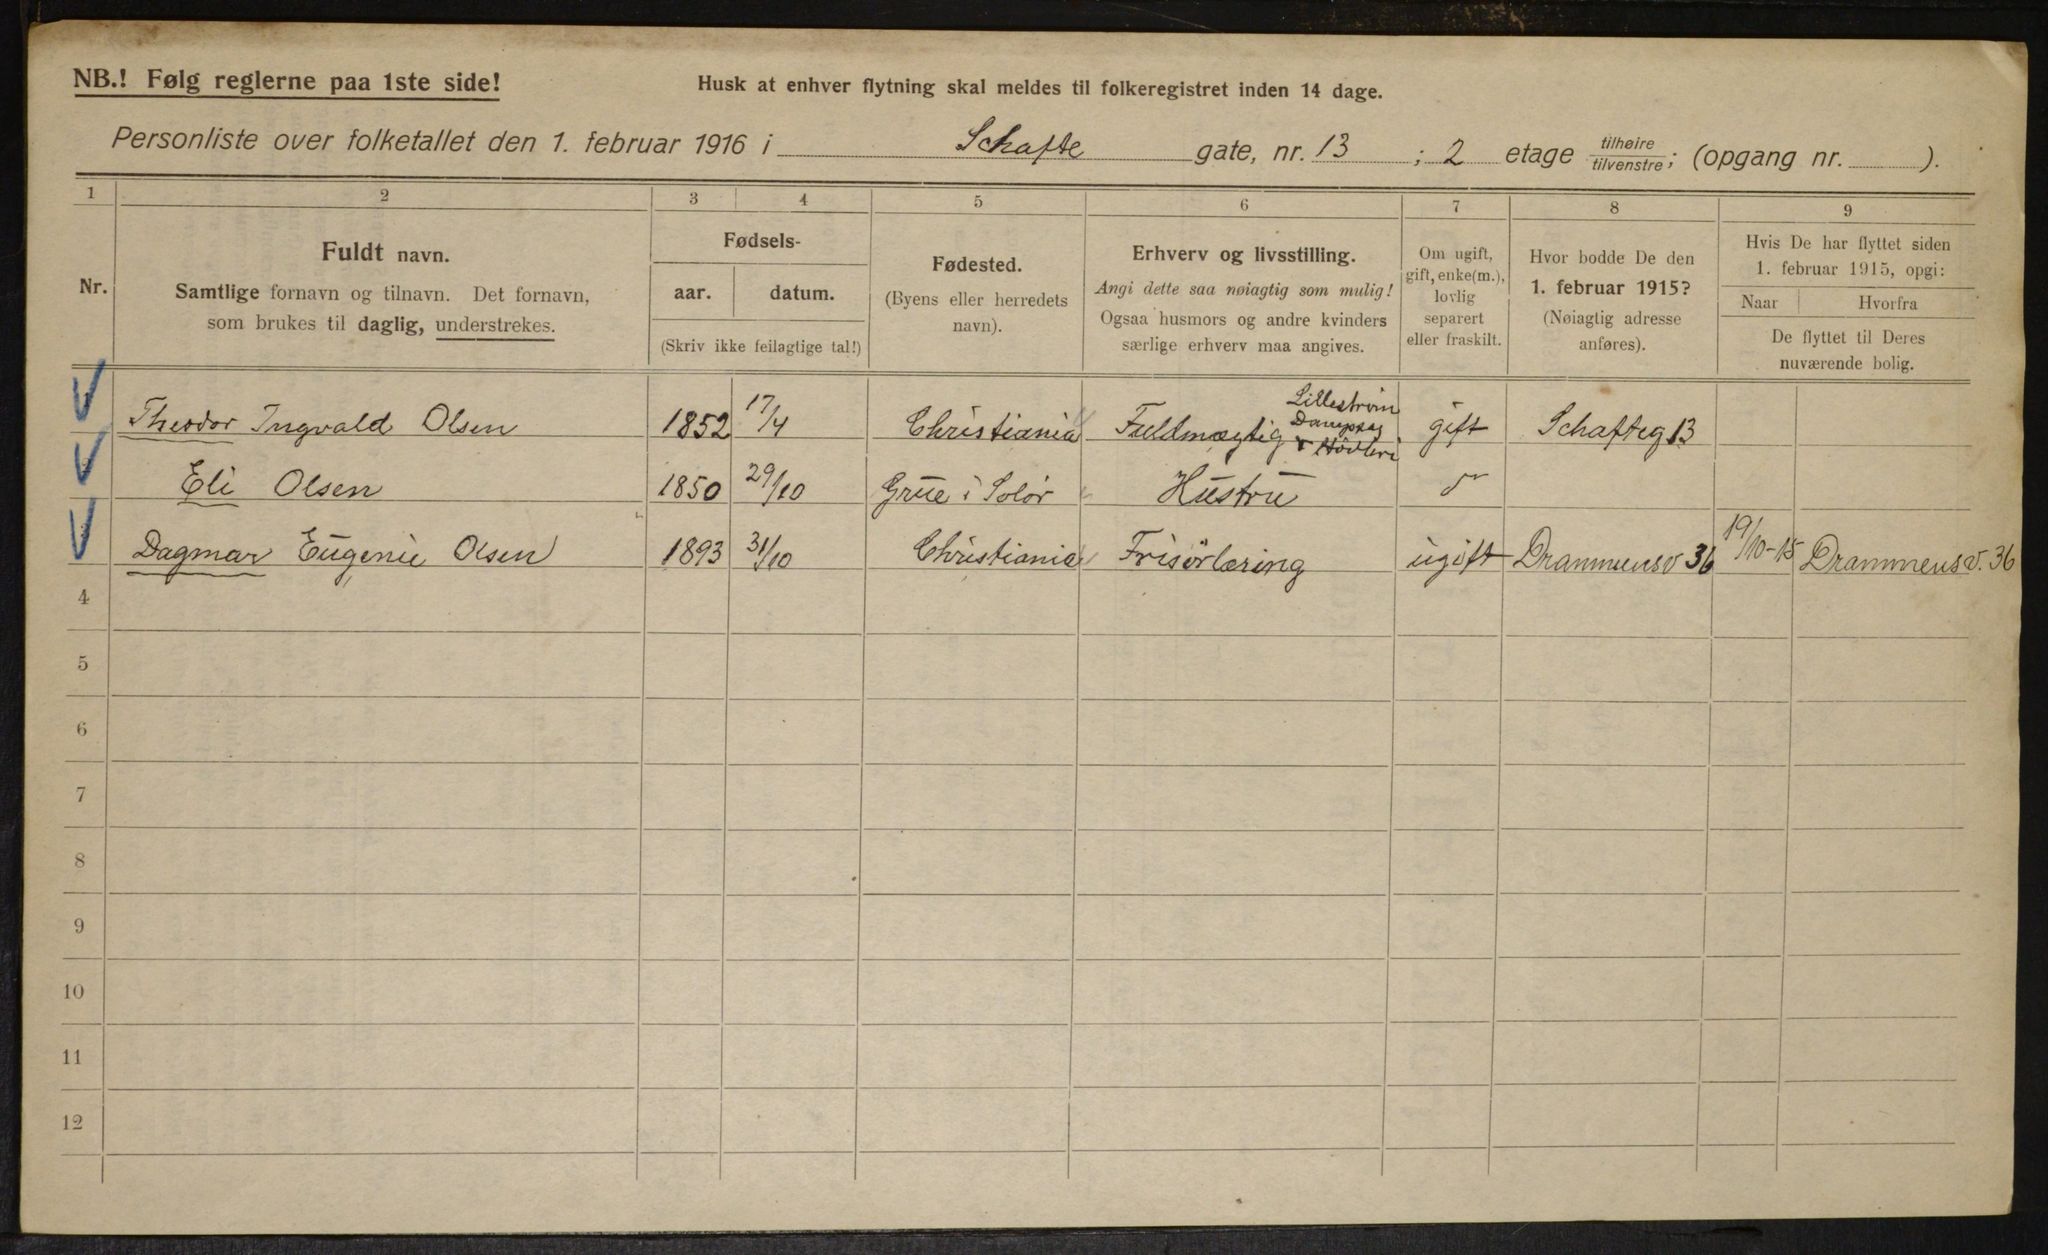 NB.! Følg reglerne paa 1ste side!
Husk at enhver flytning skal meldes til folkeregistret inden 14 dage.
Personliste over folketallet den 1. februar 1916 i Schafte gate, nr. 13 ; 2 etage tilhøire/tilvenstre; (opgang nr. ).
1 2 3 4 5 6 7 8 9
Nr.
Fuldt navn.
Samtlige fornavn og tilnavn. Det fornavn,
som brukes til daglig, understrekes.
Fødsels-
aar. datum.
(Skriv ikke feilagtige tal!)
Fødested.
(Byens eller herredets
navn).
Erhverv og livsstilling.
Angi dette saa nøiagtig som mulig!
Ogsaa husmors og andre kvinders
særlige erhverv maa angives.
Om ugift,
gift, enke(m.),
lovlig
separert
eller fraskilt.
Hvor bodde De den
1. februar 1915?
(Nøiagtig adresse
anføres).
Hvis De har flyttet siden
1. februar 1915, opgi:
Naar Hvorfra
De flyttet til Deres
nuværende bolig.
Theodor Ingvald Olsen 1852 17/4 Christiania Fuldmægtig Lillestrøm Dampsag & Høvleri gift Schafteg 13
Eli Olsen 1850 29/10 Grue i Solør Hustru
Dagmar Eugenie Olsen 1893 31/10 Christiania Frisörlæring ugift Drammensv 36 19/10-15 Drammensv. 36
4
5
6
7
8
9
10
11
12